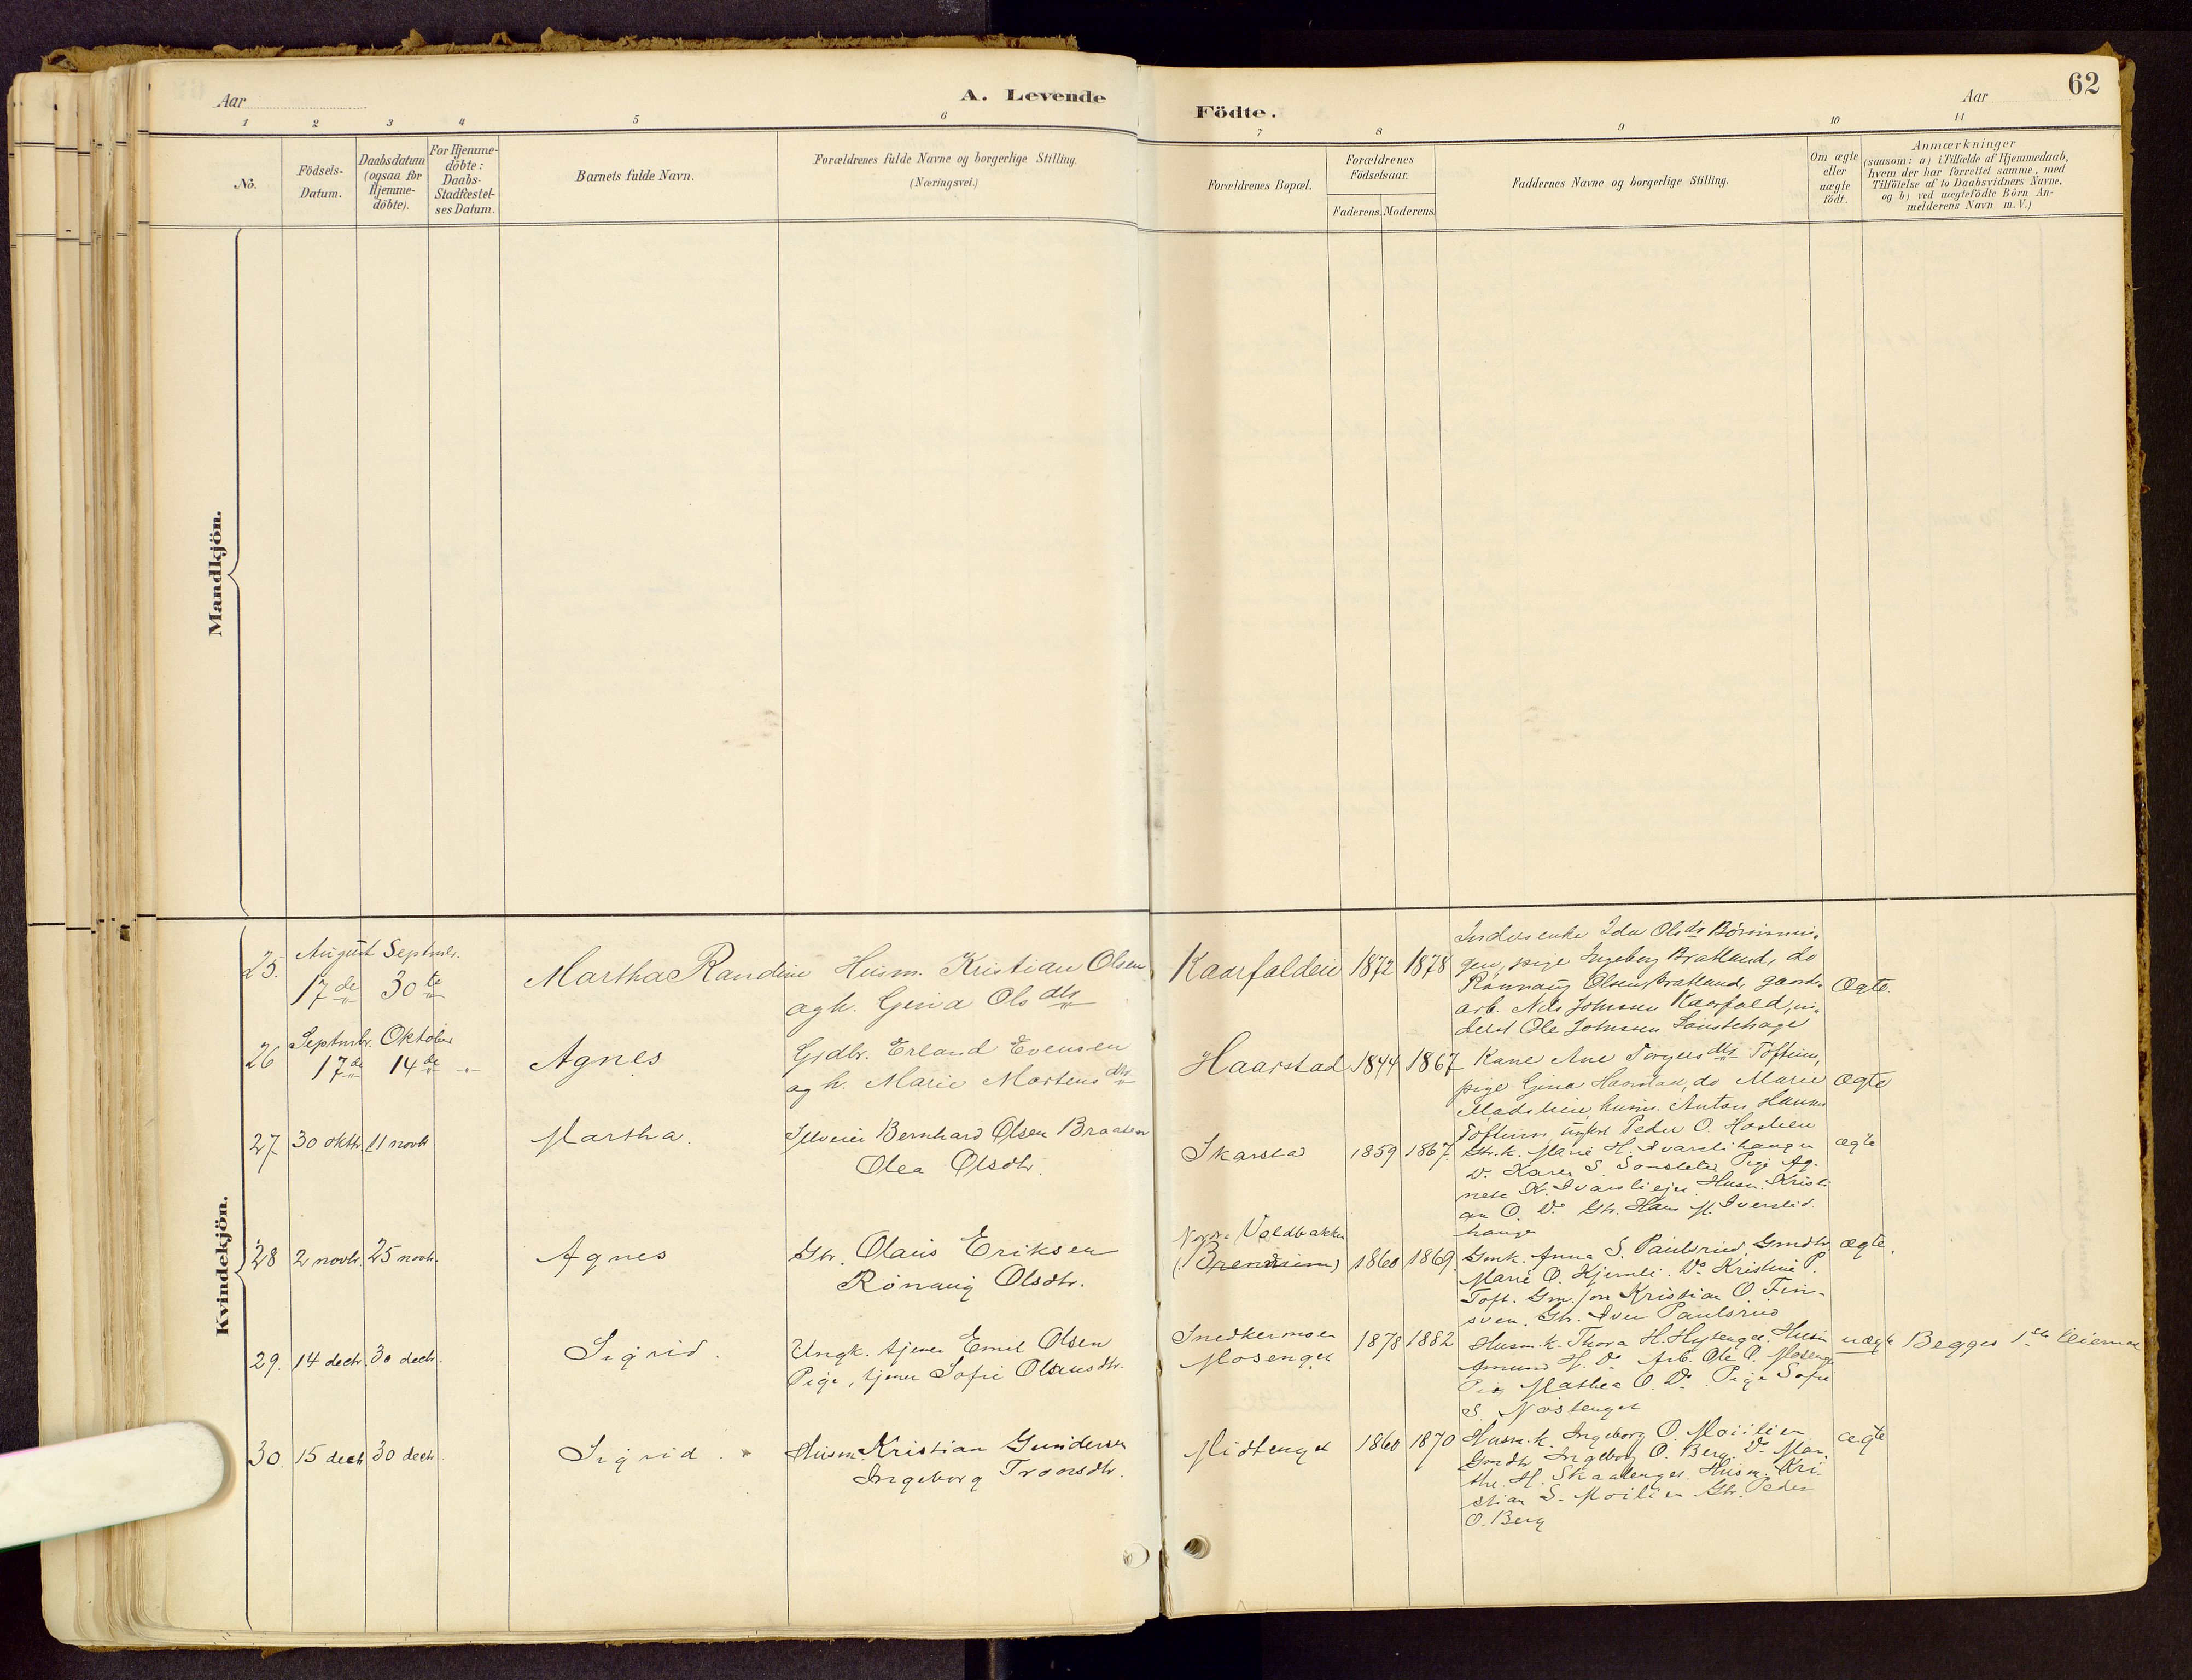 62
Aar
A. Levende
Födte.
Aar
1 2 3 4 5 6 7 8 9 10 11
No.
Födsels-
Datum.
Daabsdatum
(ogsaa for
Hjemme-
döbte).
For Hjemme-
döbte:
Daabs-
Stadfæstel-
ses Datum.
Barnets fulde Navn.
Forældrenes fulde Navne og borgerlige Stilling.
(Næringsvei.)
Forældrenes Bopæl.
Forældrenes
Födselsaar.
Faderens.
Moderens.
Faddernes Navne og borgerlige Stilling.
Om ægte
eller
uægte
födt.
Anmærkninger
(saasom: a) i Tilfælde af Hjemmedaab,
hvem der har forrettet samme, med
Tilföielse af to Daabsvidners Navne.
og b) ved uægtefödte Börn An-
melderens Navn m. V.)
Mandkjön.
Kvindekjön.
25. August 17de Septmbr. 30te
Martha Randine
Husm. Kristian Olsen
og h. Gina Olsdtr
Kaarfaldeie 1872 1878
pige Ingeborg Bratland, do
Rønnaug Olsen Bratland, gaards
arb. Nils Johnsen Kaarfald,
Ole Johnsen
Ægte.
26 Septmbr. 17de Oktober 14de -"-
Agnes
Grdbr. Erland Evensen
og h. Marie Mortensdtr
Haarstad 1844 1867
Kone Ane Torgersdtr Toftum,
pige Gina Haarstad, do Marie
husm. Anton Hansen
Toftum, Peder O.
Ægte
27. 30 oktbr. 11 novbr
Martha.
Selveier Bernhard Olsen Braaten
Olea Olsdtr.
Skarstad 1859 1867.
Gbr.k. Marie H.
Do. Karen S. Pige Ag-
nete K. Husm. Kristi
an O. Do. Gbr. Hans M. Iverslid-
hauge
ægte
28 2 novbr. 25 novbr.
Agnes
Gbr. Olaus Eriksen
Rønaug Olsdtr.
Nordre Voldbakken
(Brendium) 1860 1869.
Gmk. Anna S. Paulsrud, Gmdtr.
Marie O. Kjernli. Do Kristine P.
Toft. Gm.søn Kristian O. Fin-
sven. Gbr. Iver Paulsrud
ægte.
29. 14 decbr. 30 decbr.
Sigrid.
Ungk. tjener Emil Olsen
Pige, tjener Sofie Olausdtr.
Snedkermoen
Mosenget
1878 1882
Husm.k. Thora H. Husm
Amund H. Do. Arb. Ole O. Mosenget
Pige Mathea O. Do. Pige Sofie
S. Nøstenget
uægte
Begges 1ste leiermaal
30. 15 decbr 30 decbr.
Sigrid.
Husm. Kristian Gundersen
Ingeborg Tronsdtr.
Midtenget 1860 1870
Husm.k. Ingeborg O. Moilien
Gmdtr Ingeborg O. Berg Do Mar-
the H. Skaalenget. Husm. Kri-
stian S. Moilien Gbr. Peder
O. Berg
ægte